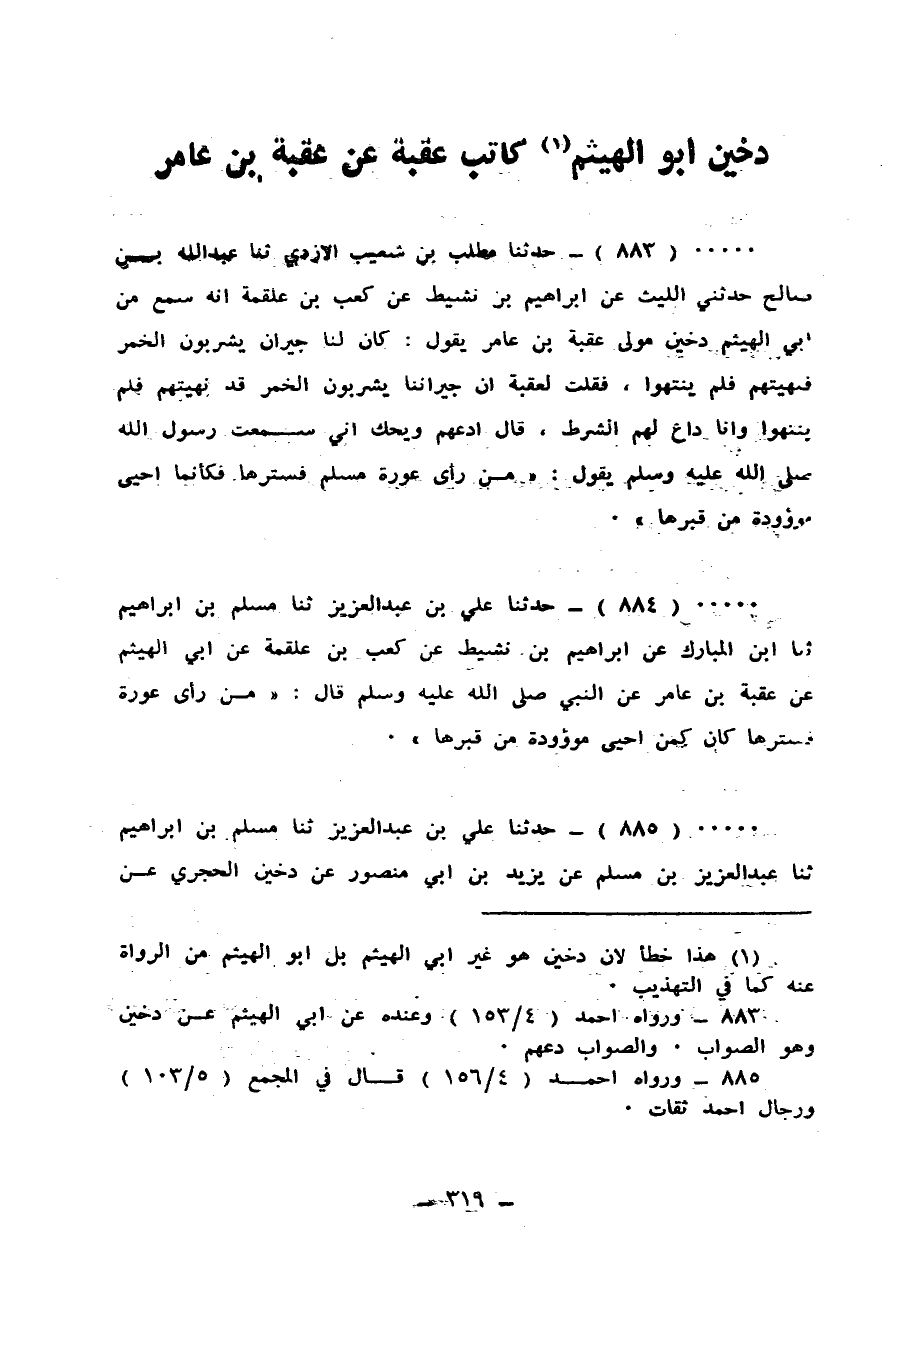 دخين ابو الهيثم(١) كاتب عقبة عن عقبة بن عامر
٠٠٠٠٠ ( ٨٨٣ ) ـ حدثنا مطلب بن شعيب الازدي ثنا عبدالله بـــن
صالح حدثني الليث عن ابراهيم بن نشيط عن كعب بن علقمة انه سمع من
ابي الهيثم دخين مولى عقبة بن عامر يقول : كان لنا جيران يشربون الخمر
فنهيتهم فلم ينتهوا ، فقلت لعقبة ان جيراننا يشربون الخمر قد نهيتهم فلم
ينتهوا وانا داع لهم الشرط ، قال ادعهم ويحك اني ســـمعت رسول الله
صلى الله عليه وسلم يقول : « مــن رأى عورة مسلم فسترها فكأنما احيى
موؤودة من قبرها » ٠
٠٠٠٠٠ ( ٨٨٤ ) ـ حدثنا علي بن عبدالعزيز ثنا مسلم بن ابراهيم
ثنا ابن المبارك عن ابراهيم بن نشيط عن كعب بن علقمة عن ابي الهيثم
عن عقبة بن عامر عن النبي صلى الله عليه وسلم قال : « مــن رأى عورة
فسترها كان كمن احيى موؤودة من قبرها » ٠
٠٠٠٠٠ ( ٨٨٥ ) ـ حدثنا علي بن عبدالعزيز ثنا مسلم بن ابراهيم
ثنا عبدالعزيز بن مسلم عن يزيد بن ابي منصور عن دخين الحجري عــن
(١) هذا خطأ لان دخين هو غير ابي الهيثم بل ابو الهيثم من الرواة
عنه كما في التهذيب ٠
٨٨٣ ـ ورواه احمد ( ١٥٣/٤ ) وعنده عن ابي الهيثم عــن دخين
وهو الصواب ٠ والصواب دعهم ٠
٨٨٥ ـ ورواه احمـــد ( ١٥٦/٤ ) قـــال في المجمع ( ١٠٣/٥ )
ورجال احمد ثقات ٠
ـ ٣١٩ ـ